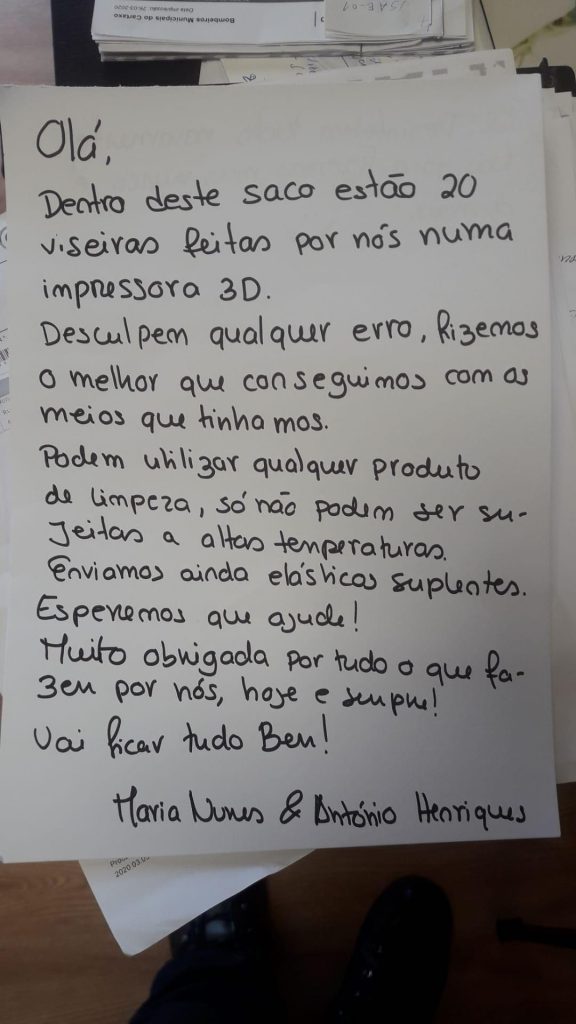 Bombeiros Municipais do Cartaxo
Olá,
Dentro deste saco estão 20
viseiras feitas por nós numa
impressora 3D.
Desculpem qualquer erro, fizemos
o melhor que conseguimos com os
meios que tinhamos.
Podem utilizar qualquer produto
de limpeza, só não podem ser su-
jeitas a altas temperaturas.
Enviamos ainda elásticos suplentes.
Esperemos que ajude!
Muito obrigada por tudo o que fa-
zem por nós, hoje e sempre!
Vai ficar tudo Bem!
Maria Nunes & António Henriques